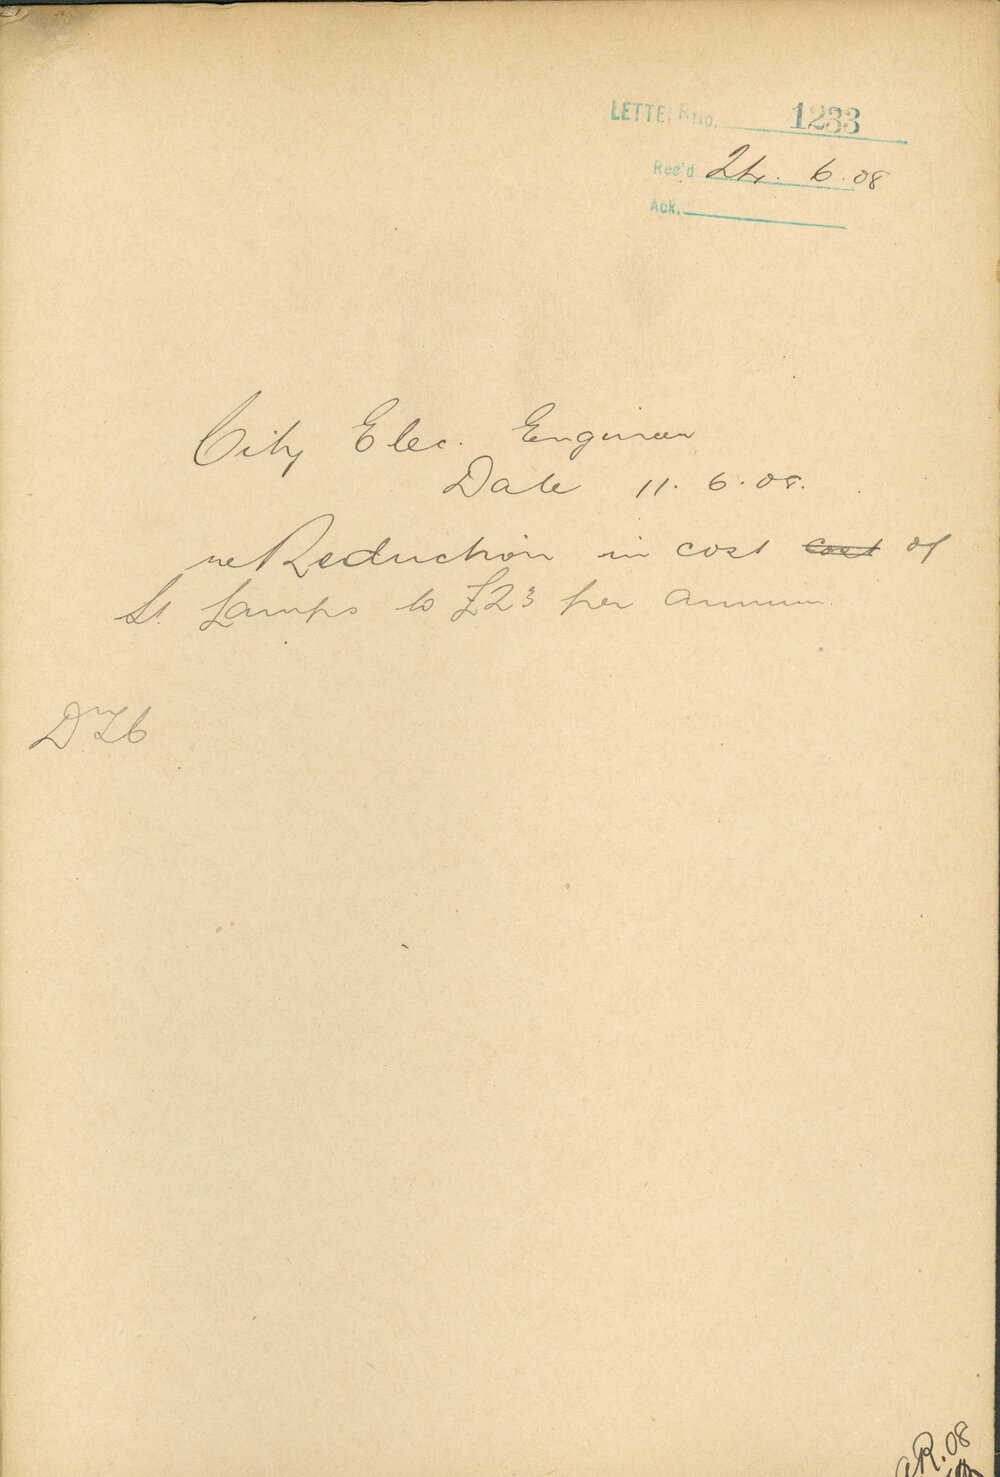 LETTER No. 1233
Rec'd 24. 6. 08
Ack.
City Elec. Engineer
Date 11. 6. 08.
re Reduction in cost cost of
St. Lamps to £23 per annum.